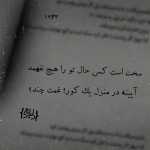 ۱۲۳۳
سخت است کس حال تو را هیچ نفهمد
آیینه در منزل یک کور؛ غمت چند؟